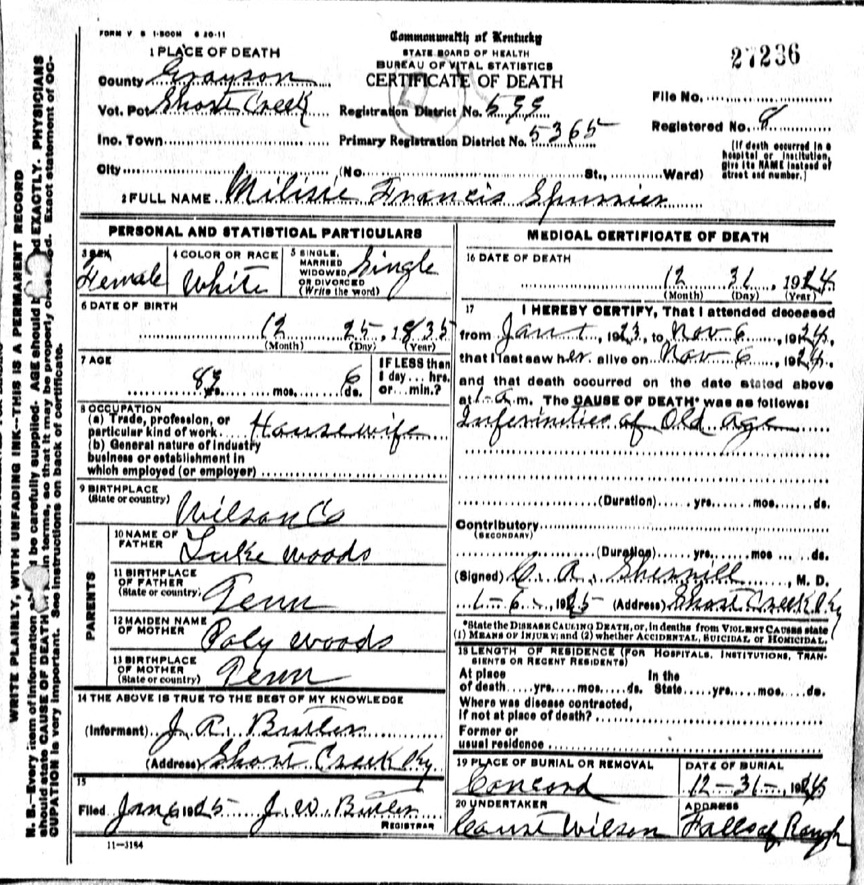 FORM V S 1-500M 6 20-11
Commonwealth of Kentucky
STATE BOARD OF HEALTH
BUREAU OF VITAL STATISTICS
CERTIFICATE OF DEATH
27236
1 PLACE OF DEATH
County Grayson
Vot. Pct Short Creek
Inc. Town
City (No. St., Ward)
Registration District No. 599
Primary Registration District No. 5365
File No.
Registered No. 8
[If death occurred in a
hospital or institution,
give its NAME instead of
street and number.]
2 FULL NAME Milisie Francis Spurrier
PERSONAL AND STATISTICAL PARTICULARS
3 SEX
Female
4 COLOR OR RACE
White
5 SINGLE,
MARRIED
WIDOWED,
OR DIVORCED
(Write the word)
Single
6 DATE OF BIRTH
12 25, 1835
(Month) (Day) (Year)
7 AGE
89 yrs. mos. 6 ds.
IF LESS than
1 day... hrs.
or... min.?
8 OCCUPATION
(a) Trade, profession, or
particular kind of work Housewife
(b) General nature of industry
business or establishment in
which employed (or employer)
9 BIRTHPLACE
(State or country)
Wilson Co
PARENTS
10 NAME OF
FATHER
Luke Woods
11 BIRTHPLACE
OF FATHER
(State or country)
Tenn
12 MAIDEN NAME
OF MOTHER
Poly Woods
13 BIRTHPLACE
OF MOTHER
(State or country)
Tenn
14 THE ABOVE IS TRUE TO THE BEST OF MY KNOWLEDGE
(Informant) J. R. Butler
(Address) Short Creek Ky
15
Filed Jan 6 1925 J. W. Butler
REGISTRAR
11-3184
MEDICAL CERTIFICATE OF DEATH
16 DATE OF DEATH
12 31, 1924
(Month) (Day) (Year)
17 I HEREBY CERTIFY, That I attended deceased
from Jan 1, 1923, to Nov 6, 1924,
that I last saw her alive on Nov 6, 1924,
and that death occurred on the date stated above
at 1 a m. The CAUSE OF DEATH* was as follows:
Inferinities of Old Age
(Duration) yrs. mos. ds.
Contributory
(SECONDARY)
(Duration) yrs. mos ds.
(Signed) C. R. Sherrill, M. D.
1-6, 1925 (Address) Short Creek Ky
*State the DISEASE CAUSING DEATH, or, in deaths from VIOLENT CAUSES state
(1) MEANS OF INJURY; and (2) whether ACCIDENTAL, SUICIDAL, or HOMICIDAL.
18 LENGTH OF RESIDENCE (FOR HOSPITALS, INSTITUTIONS, TRAN-
SIENTS OR RECENT RESIDENTS)
At place In the
of death yrs. mos. ds. State yrs. mos. ds.
Where was disease contracted,
If not at place of death?
Former or
usual residence
19 PLACE OF BURIAL OR REMOVAL
Concord
DATE OF BURIAL
12-31-, 1924
20 UNDERTAKER
Wilson
ADDRESS
Falls of Rough
WRITE PLAINLY, WITH UNFADING INK—THIS IS A PERMANENT RECORD
N. B.—Every item of information be carefully supplied. AGE should EXACTLY. PHYSICIANS
should state CAUSE OF DEATH in terms, so that it may be properly Exact statement of OC-
CUPATION is very important. See instructions on back of certificate.